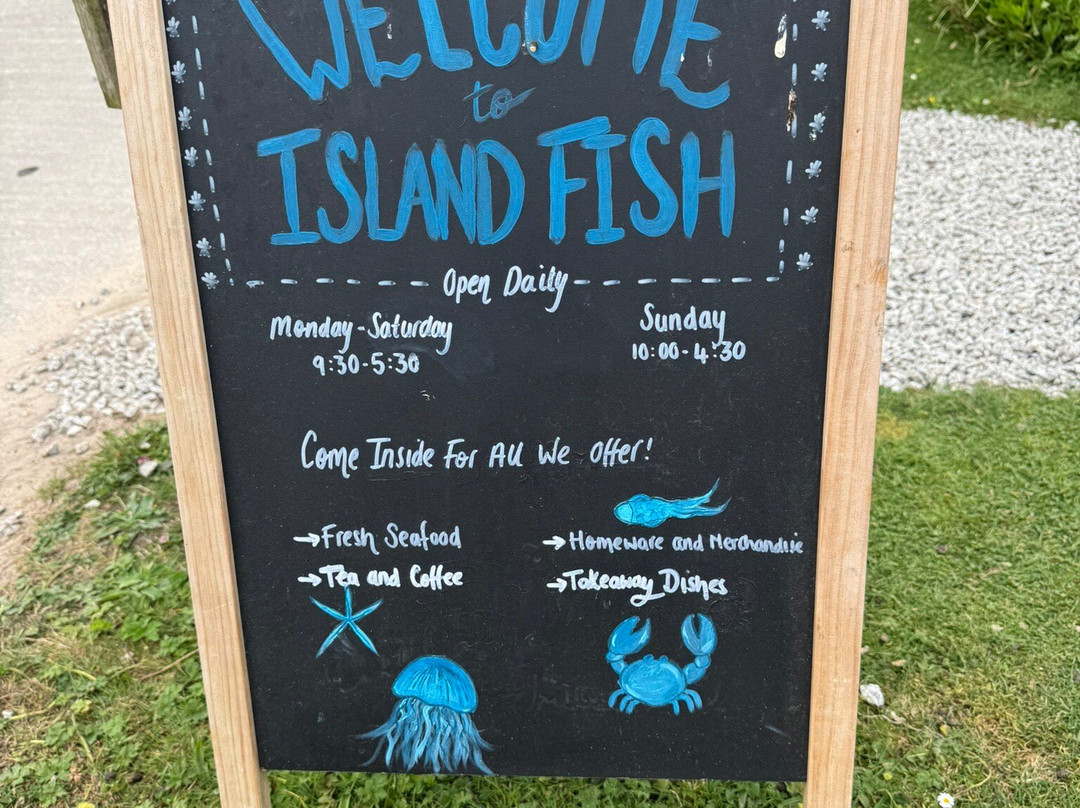 WELCOME
to
ISLAND FISH
Open Daily
Monday-Saturday
9:30-5:30
Sunday
10:00-4:30
Come Inside For All We Offer!
→Fresh Seafood
→Tea and Coffee
→Homeware and Merchandise
→Takeaway Dishes